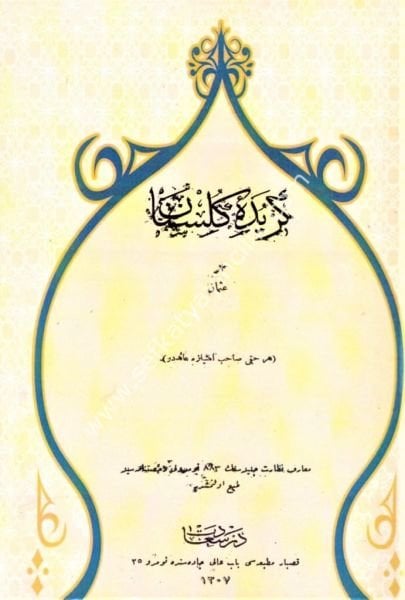 گزیدهٔ گلستان
عثمان
(هر حقی صاحب امتیازه عائددر)
معارف نظارت جلیله‌سنك ٨٨٣ نومرولی رخصتنامه‌سیله
طبع اولنمشدر
درسعادت
قصبار مطبعه‌سی باب عالی جاده‌سنده نومرو ٢٥
١٣٠٧